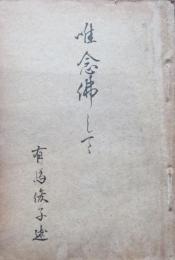 唯念佛して
有馬俊子述